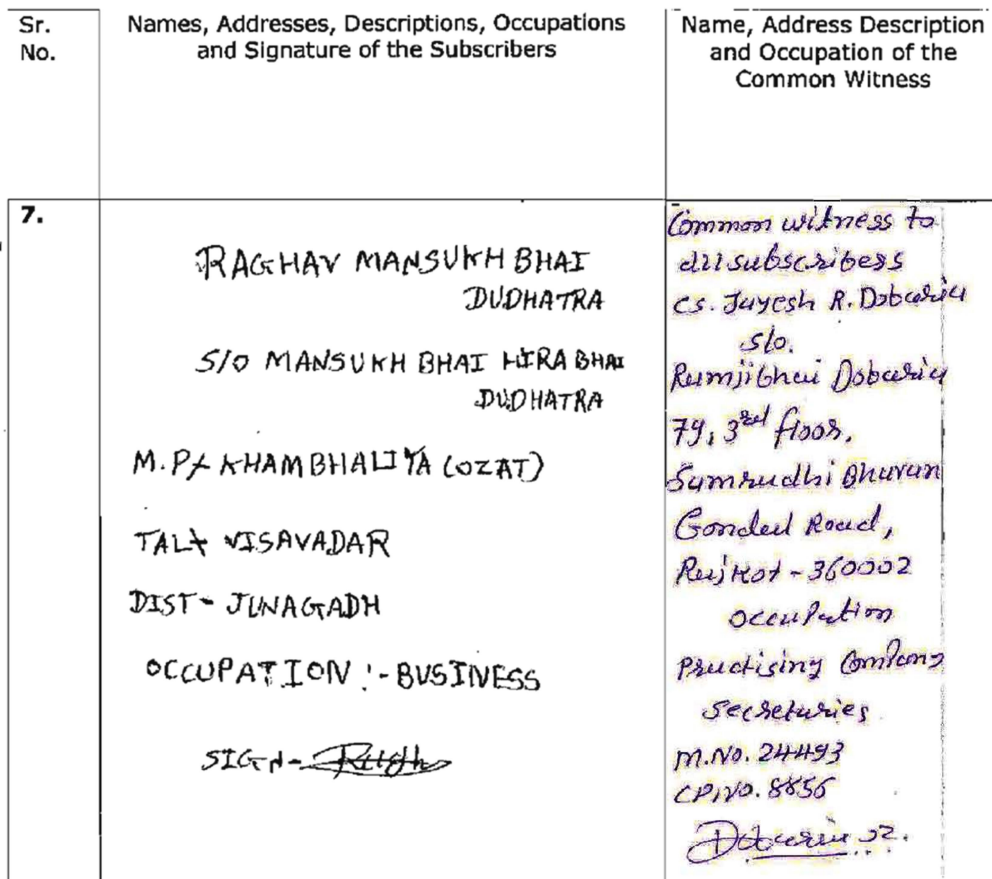 Sr.
No.
Names, Addresses, Descriptions, Occupations
and Signature of the Subscribers
Name, Address Description
and Occupation of the
Common Witness
7.
RAGHAV MANSUKH BHAI
DUDHATRA
S/O MANSUKH BHAI HIRA BHAI
DUDHATRA
M.P/ KHAMBHALIYA (OZAT)
TAL VISAVADAR
DIST- JUNAGADH
OCCUPATION :- BUSINESS
SIGN-
Common witness to
all subscribers
CS. Jayesh R. Dobaria
S/o.
Ramjibhai Dobaria
79, 3rd floor,
Samrudhi Bhavan
Gondal Road,
Rajkot - 360002
Occupation
Practising Company
Secretaries
M.NO. 24493
CP.NO. 8856